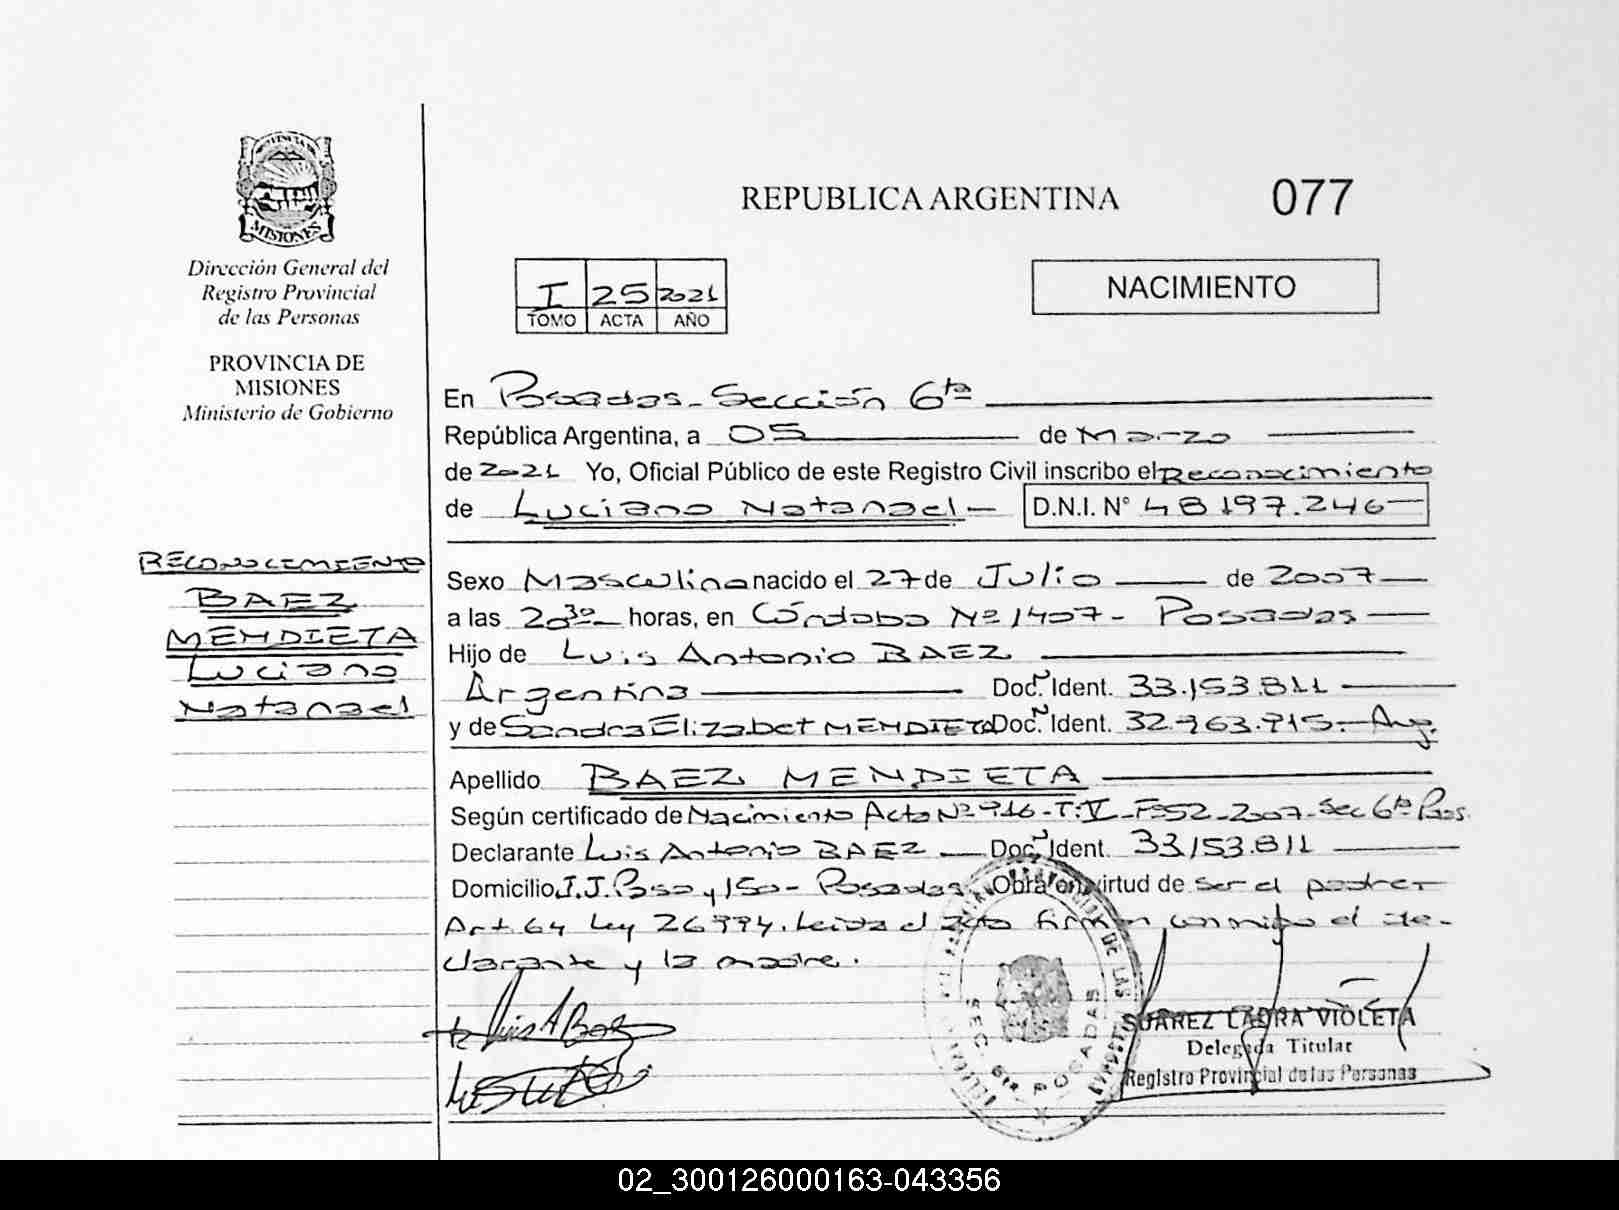 PROVINCIA DE
MISIONES
Dirección General del
Registro Provincial
de las Personas
PROVINCIA DE
MISIONES
Ministerio de Gobierno
RECONOCIMIENTO
BAEZ
MENDIETA
Luciano
Natanael
REPUBLICA ARGENTINA
077
I 25 2021
TOMO ACTA AÑO
NACIMIENTO
En Posadas - Sección 6ta
República Argentina, a 05 de Marzo
de 2021 Yo, Oficial Público de este Registro Civil inscribo el Reconocimiento
de Luciano Natanael - D.N.I. N° 48.197.246
Sexo Masculino nacido el 27 de Julio de 2007
a las 20:30 horas, en Córdoba Nº 1407 - Posadas
Hijo de Luis Antonio BAEZ
Argentina Doc. Ident. 33.153.811
y de Sandra Elizabet MENDIETA Doc. Ident. 32.963.915 - Arg.
Apellido BAEZ MENDIETA
Según certificado de Nacimiento Acta Nº 916 - T: V - F: 52 - 2007 - Sec 6ta Pos.
Declarante Luis Antonio BAEZ Doc. Ident. 33.153.811
Domicilio J.J. Paso y 150 - Posadas Obra en virtud de ser el padre
Art. 64 Ley 26994. Leída el acta firman conmigo el de-
clarante y la madre.
Luis A Baez
SEC. 6ta POSADAS
SUAREZ LAURA VIOLETA
Delegada Titular
Registro Provincial de las Personas
02_300126000163-043356